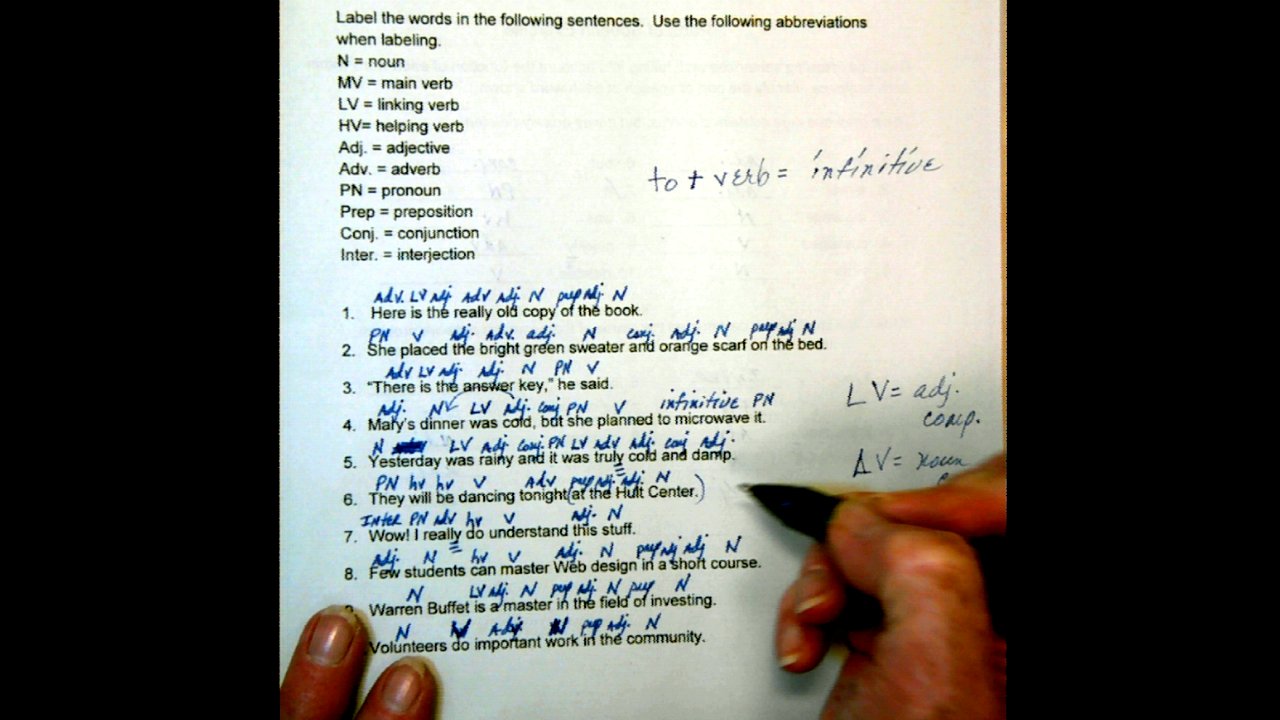 Label the words in the following sentences. Use the following abbreviations
when labeling.
N = noun
MV = main verb
LV = linking verb
HV= helping verb
Adj. = adjective
Adv. = adverb
PN = pronoun
Prep = preposition
Conj. = conjunction
Inter. = interjection
to + verb = infinitive
Adv. LV adj. Adv Adj. N prep Adj. N
1. Here is the really old copy of the book.
PN V adj. Adv. adj. N conj. Adj. N prep adj N
2. She placed the bright green sweater and orange scarf on the bed.
adv LV adj. adj. N PN V
3. "There is the answer key," he said.
Adj. N LV Adj. conj PN V infinitive PN
4. Mary's dinner was cold, but she planned to microwave it.
LV = adj.
comp.
N LV Adj conj. PN LV adv Adj. conj Adj.
5. Yesterday was rainy and it was truly cold and damp.
AV = noun
PN hv hv V Adv prep adj. adj. N
6. They will be dancing tonight (at the Hult Center.)
Inter PN adv hv V adj. N
7. Wow! I really do understand this stuff.
Adj. N hv V Adj. N prep adj Adj N
8. Few students can master Web design in a short course.
N LV adj. N prep adj. N prep N
Warren Buffet is a master in the field of investing.
N Adj. N prep Adj. N
Volunteers do important work in the community.